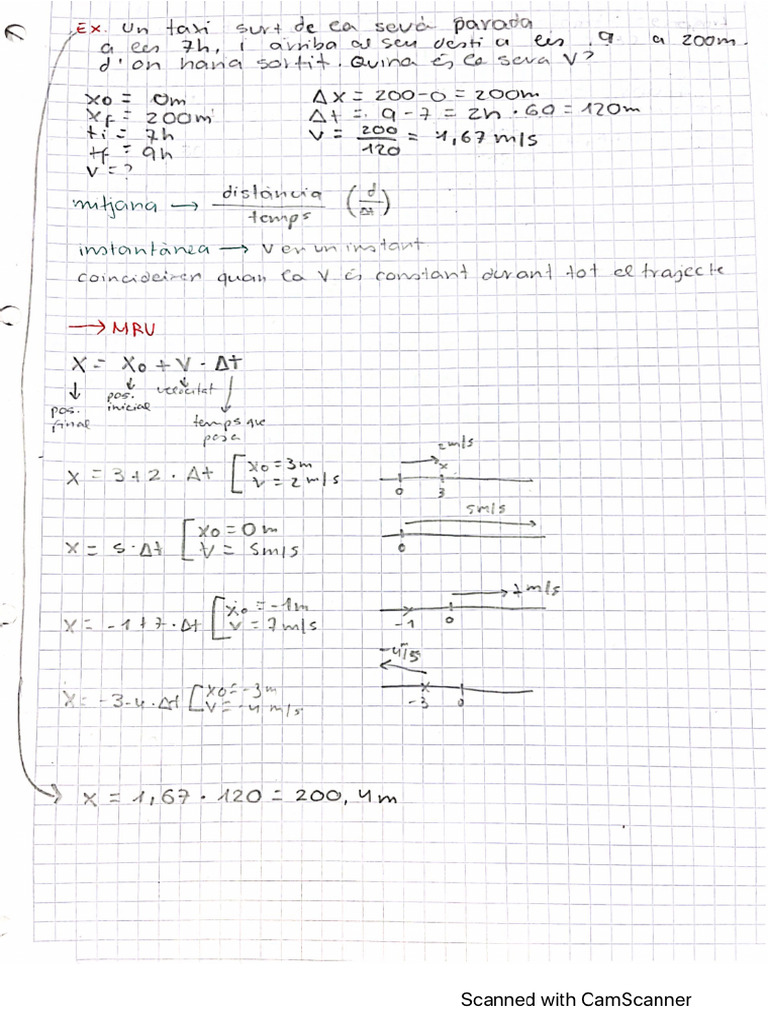 Ex. Un taxi surt de la seva parada
a les 7h, i arriba al seu destí a les 9 a 200m.
d'on havia sortit. Quina és la seva V?
x0 = 0m
xf = 200m
ti = 7h
tf = 9h
v = ?
Δx = 200-0 = 200m
Δt = 9-7 = 2h · 60 = 120m
V = 200/120 = 1,67 m/s
mitjana → distància/temps (d/Δt)
instantànea → V en un instant
coincideixen quan la V és constant durant tot el trajecte
→ MRU
X = X0 + V · Δt
pos. final
pos. inicial
velocitat
temps que
pasa
X = 3+2 · Δt [x0 = 3m
v = 2 m/s
2m/s
x
0 3
X = 5·Δt [x0 = 0m
V = 5m/s
5m/s
0
X = -1+7·Δt [x0 = -1m
V = 7m/s
7m/s
-1 0
X = -3-4·Δt [x0 = -3m
V = -4 m/s
-4/s
x
-3 0
→ x = 1,67 · 120 = 200,4m
Scanned with CamScanner